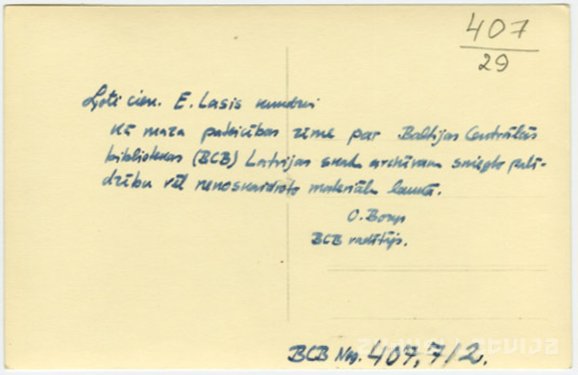 407
29
Ļoti cien. E. Lasis kundzei
Kā maza pateicības zīme par Baltijas Centrālās
bibliotekas (BCB) Latvijas archīvam sniegto palī-
dzību vēl nenoskaidroto materiālu
O. Bong
BCB vadītājs.
BCB Nog. 407,7/2.